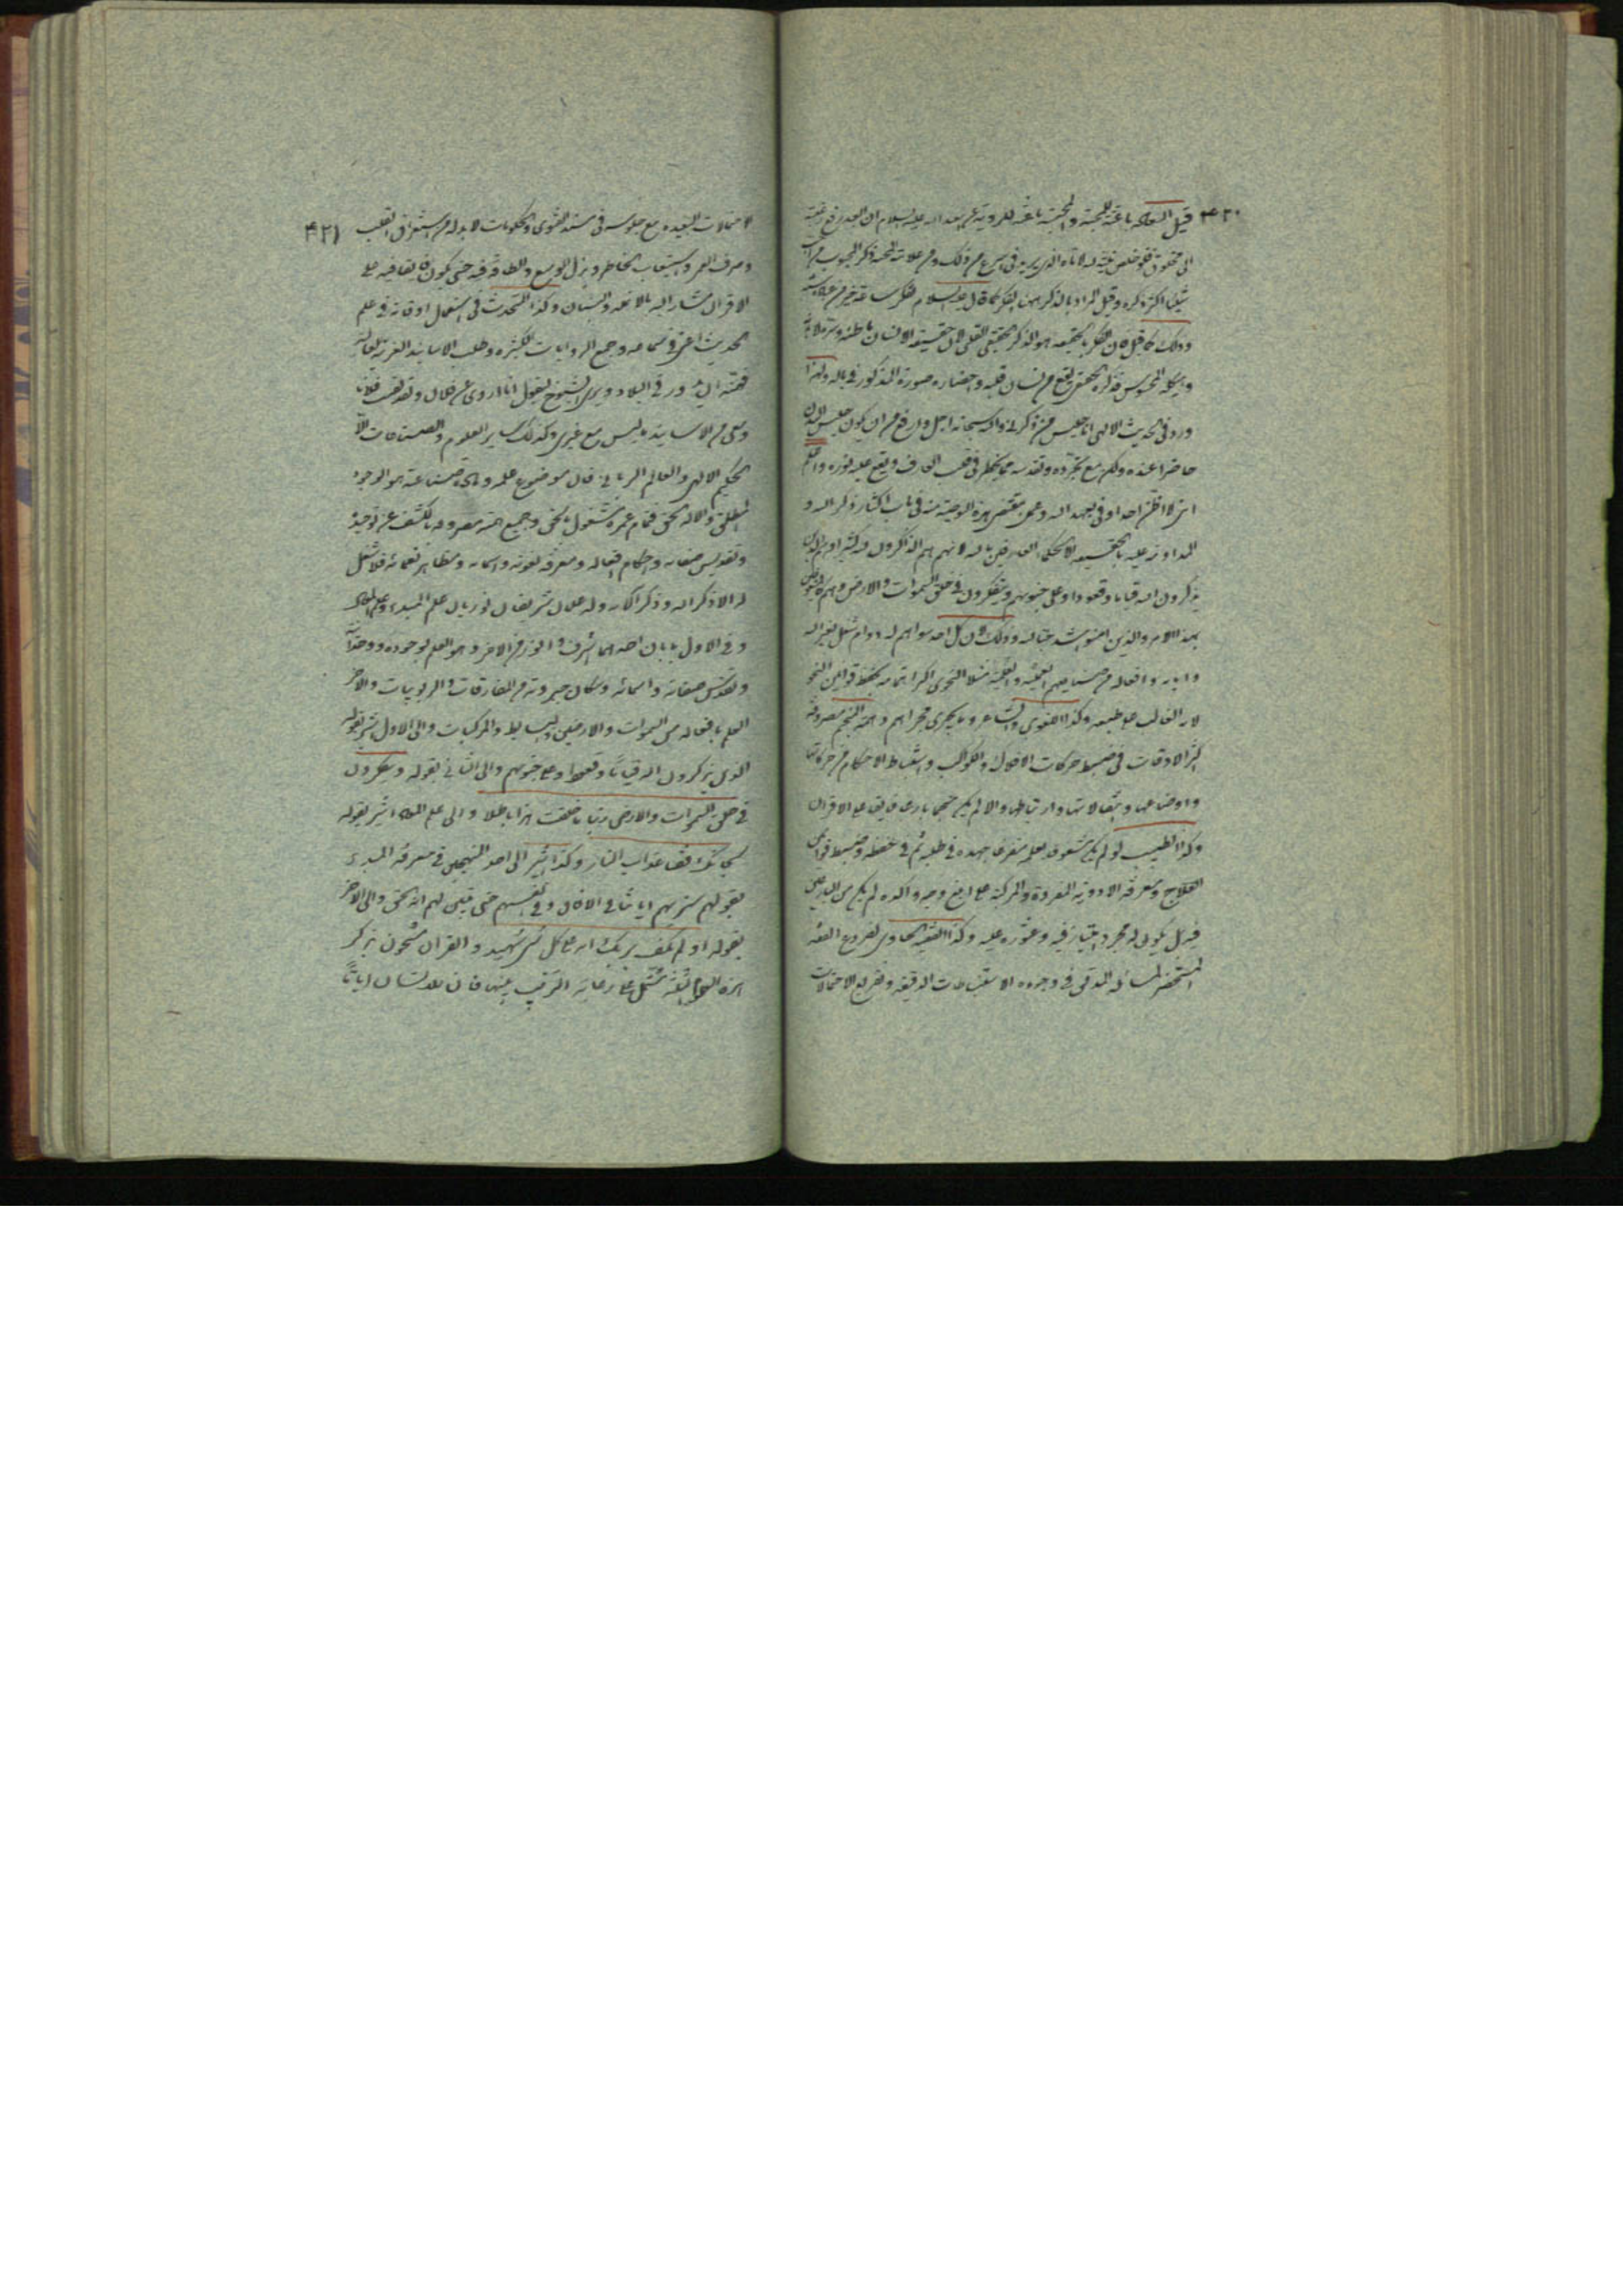 ٤٢٠
قيل باعثة للمحبة والمحبة باعثة للرؤية عليه السلام ان العبد رفع رغبته
الى مخلوق فلو خلص نيته لله لاتاه الذى يريد فى اسرع من ذلك ومن علامة المحبة ذكر المحبوب من احب
شيئا اكثر ذكره وقيل المراد بالذكر هنا الفكر كما قال عليه السلام تفكر ساعة خير من عبادة سنة
وذلك كما قيل لان الفكر بالحقيقة هو الذكر الحقيقى القلبى لان حقيقة الانسان باطنه وسره لا بدنه
المحسوس فذكره الحقيقى يقع من لسان قلبه واحضاره صورة المذكور فى باله ولهذا
ورد فى الحديث الالهى انا جليس من ذكرنى والله سبحانه اجل وارفع من ان يكون جليس البدن
حاضرا عنده ولكن مع تجرده وتقدسه مما يتجلى فى قلب العارف ويقع عليه نوره واعلم
انى لا اظن احدا وفى بعهد الله وعمل بمقتضى هذه الوصية منه فى باب اكثار ذكر الله و
المداومة عليه بالحقيقة الا الحكماء العارفين بالله لانهم هم الذاكرون الله كثيرا وهم الذين
يذكرون الله قياما وقعودا وعلى جنوبهم ويتفكرون فى خلق السموات والارض وهم المخصوصون
بهذا الامر والذين امنوا اشد حبا لله وذلك لان كل احد سواهم له دوام شغل بغير الله
واياته وافعاله من صنايعهم العملية والعلمية مثلا النحوى اكثر اهتمامه بحفظ قوانين النحو
لانه الغالب على طبعه وكذا اللغوى والشاعر وما يجرى مجراهم وهمة المنجم مصروفة
اكثر الاوقات فى ضبط حركات الافلاك والكواكب واستنباط الاحكام من حركاتها
واوضاعها واتصالاتها وارتباطها والا لم يكن منجما بارعا فايقا على الاقران
وكذا الطبيب لو لم يكن مشعوفا بعلمه مفرغا جهده فى طلبه ثم فى حفظه وضبط قوانين
العلاج ومعرفة الادوية المفردة والمركبة على ابلغ وجه واكده لم يكن من البارعين
فيه بل يكون له مجرد وعثوره عليه وكذا الفقيه الحاوى لفروع الفقه
المستحضر لمسائله المدقق فى وجوه الاستنباطات الدقيقة وتفريع الاحتمالات
٤٢١
الاحتمالات البعيدة مع جلوسه فى مسند الفتوى والحكومات لا بد له من استغراق القلب
وصرف العمر واستيعاب الخاطر وبذل الوسع والطاقة فيه حتى يكون فايقا فيه على
الاقران مشارا اليه بالانملة والبنان وكذا المتحدث فى استعمال اوقاته فى علم
الحديث اعنى فى سماعه وجمع الروايات الكثيرة وطلب الاسانيد الغريبة العالية
فهمته ان يدور فى البلاد ويرى الشيوخ ليقول انا اروى عن فلان ولقد لقيت فلانا
ومعى من الاسانيد ما ليس مع غيرى وكذلك ساير العلوم والصناعات الا
الحكيم الالهى والعالم الربانى فان موضوع علمه وما عنه صناعته هو الوجود
المطلق والاله الحق فتمام عمره مشغول بالحق وجميع همته مصروفة بالكشف عن توحيده
وتقديس صفاته واحكام افعاله ومعرفة نعوته واسمائه ومظاهر نعمائه فلا شغل
له الا ذكر الله وذكر الائه وله علمان شريفان نوريان علم المبدء وعلم المعاد
وفى الاول بابان احدهما اشرف وانور من الاخر وهو العلم بوجوده ووحدانيته
وتقديس صفاته واسمائه وسكان جبروته من المفارقات والربوبيات والاخر
العلم بافعاله من السموات والارضين والبسايط والمركبات والى الاول اشير بقوله
الذين يذكرون الله قياما وقعودا وعلى جنوبهم والى الثانى بقوله ويتفكرون
فى خلق السموات والارض ربنا ما خلقت هذا باطلا والى علم المعاد اشير بقوله
سبحانك فقنا عذاب النار وكذا اشير الى احد المنهجين فى معرفة المبدء
بقوله سنريهم اياتنا فى الافاق وفى انفسهم حتى يتبين لهم انه الحق والى الاخر
بقوله او لم يكف بربك انه على كل شئ شهيد والقران مشحون بذكر
هذه مشتمل على رعاية الترتيب بينها فان للانسان اياتا